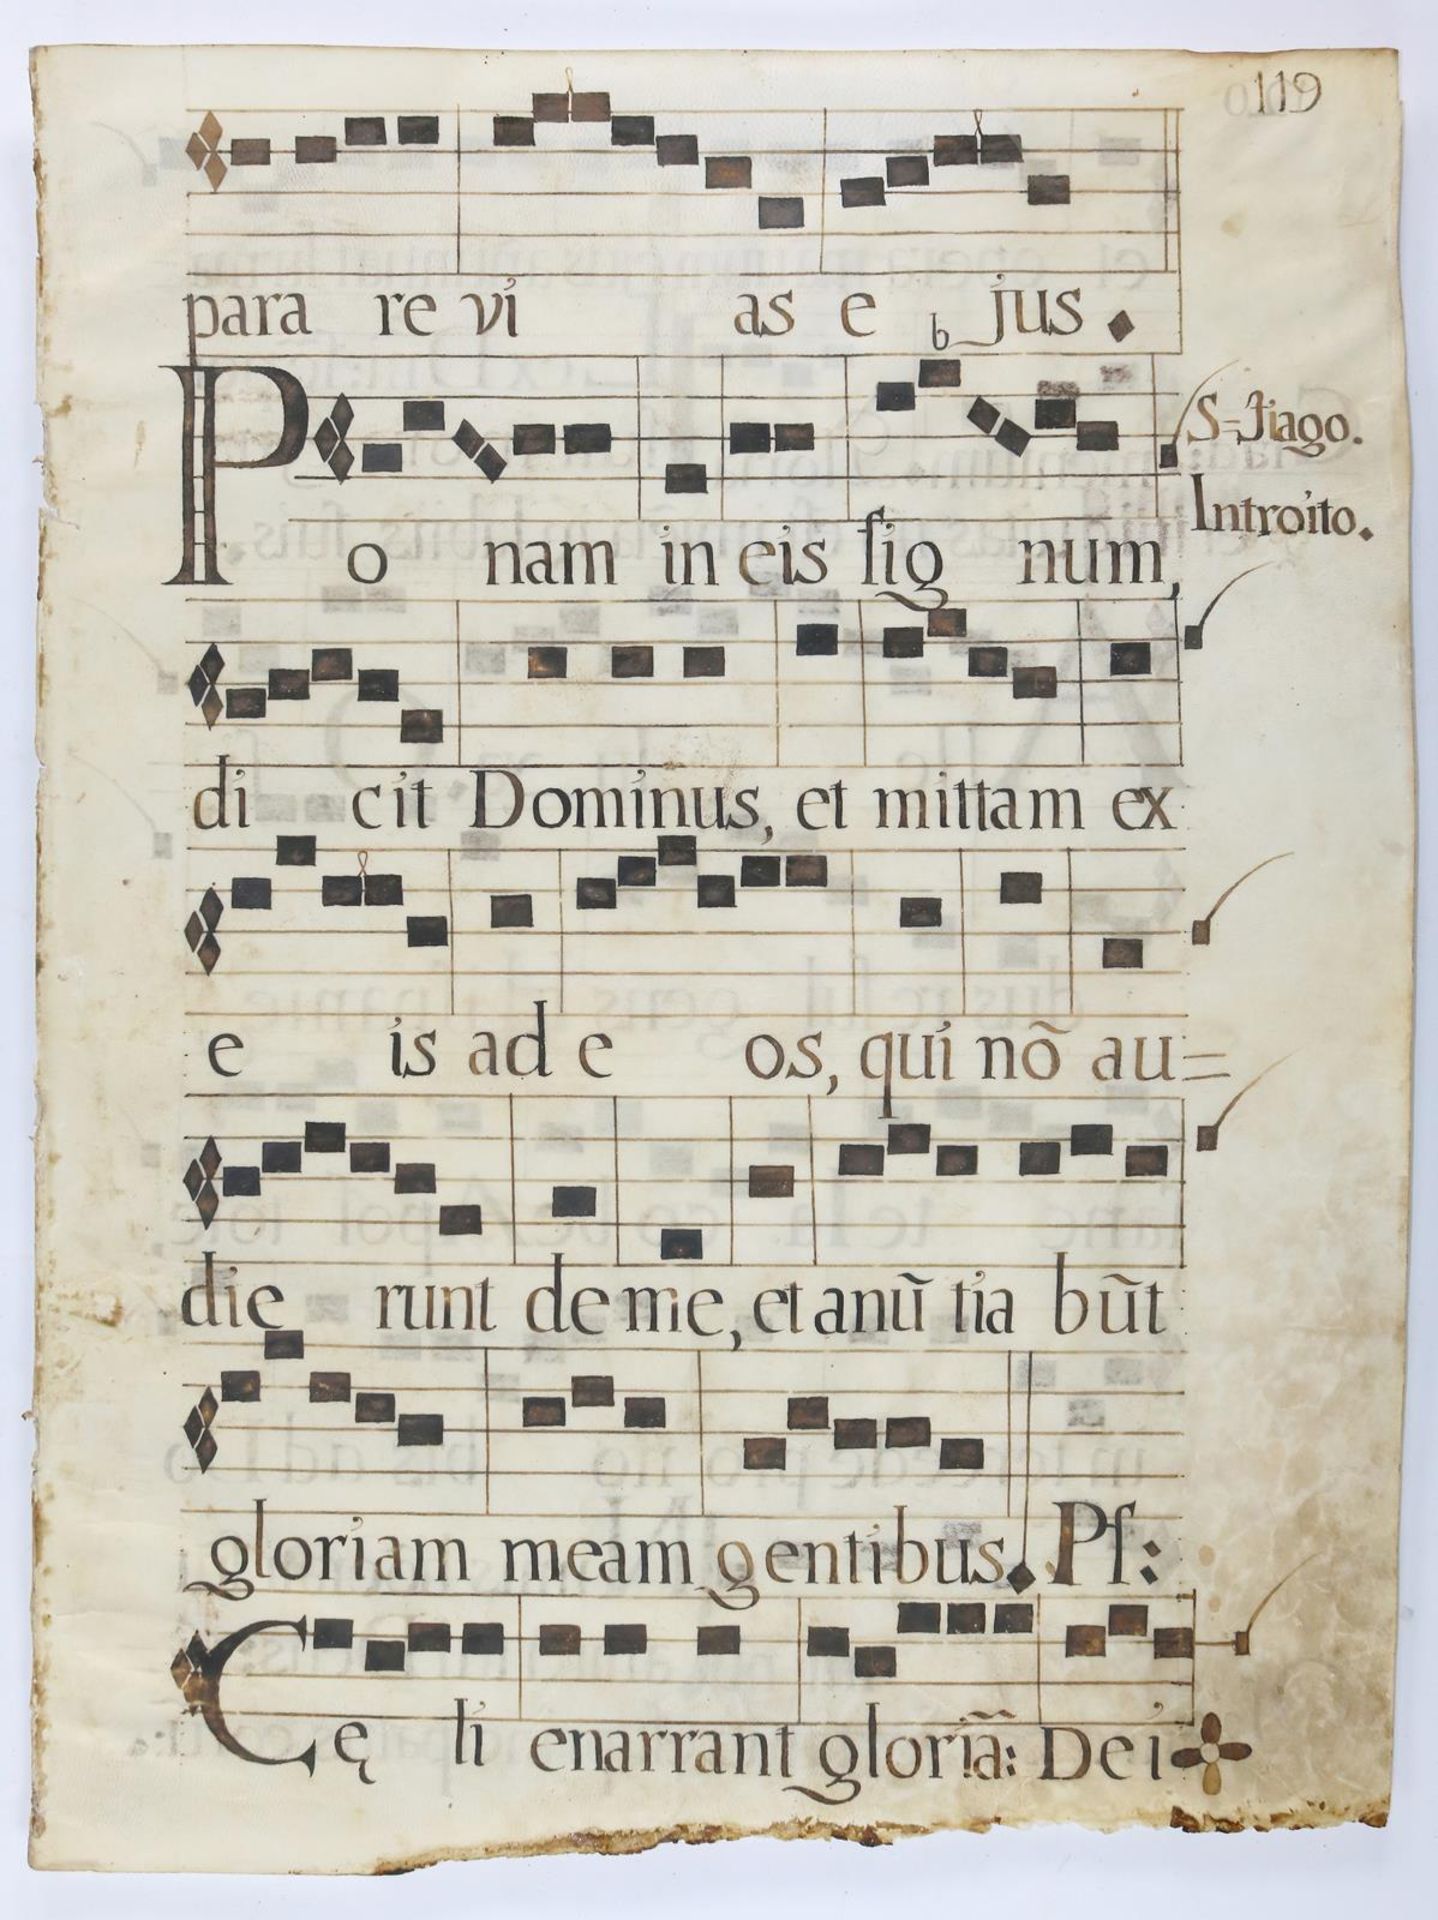 119
para re vi as e jus.
b
S=Tiago.
Introito.
Po nam in eis sig num,
di cit Dominus, et mittam ex
e is ad e os, qui nõ au=
die runt de me, et anũ tia bũt
gloriam meam gentibus. Ps:
Cę li enarrant gloriã: Dei